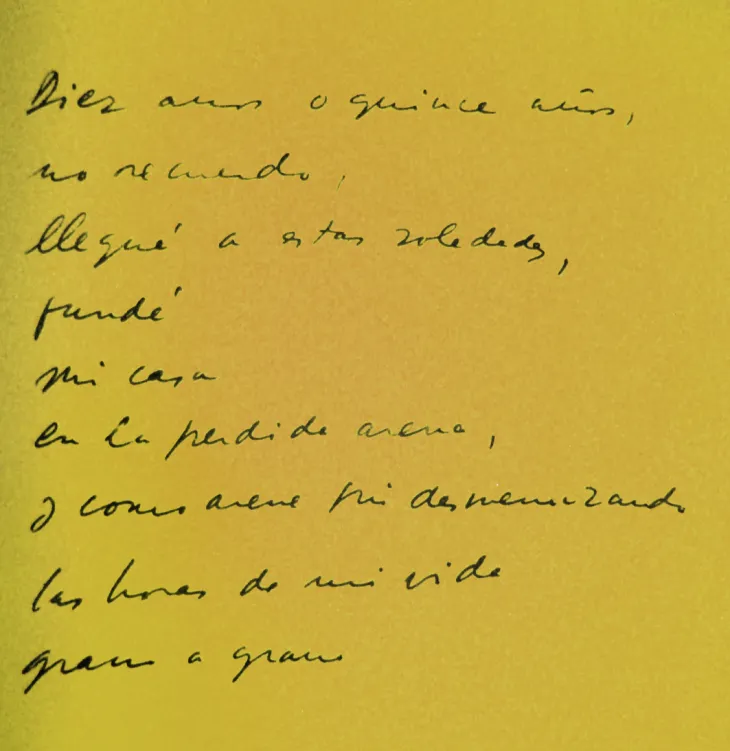 Diez anos o quince años,
no recuerdo,
llegué a estas soledades,
fundé
mi casa
en la perdida arena,
y como arena fui desmenuzando
las horas de mi vida
grano a grano